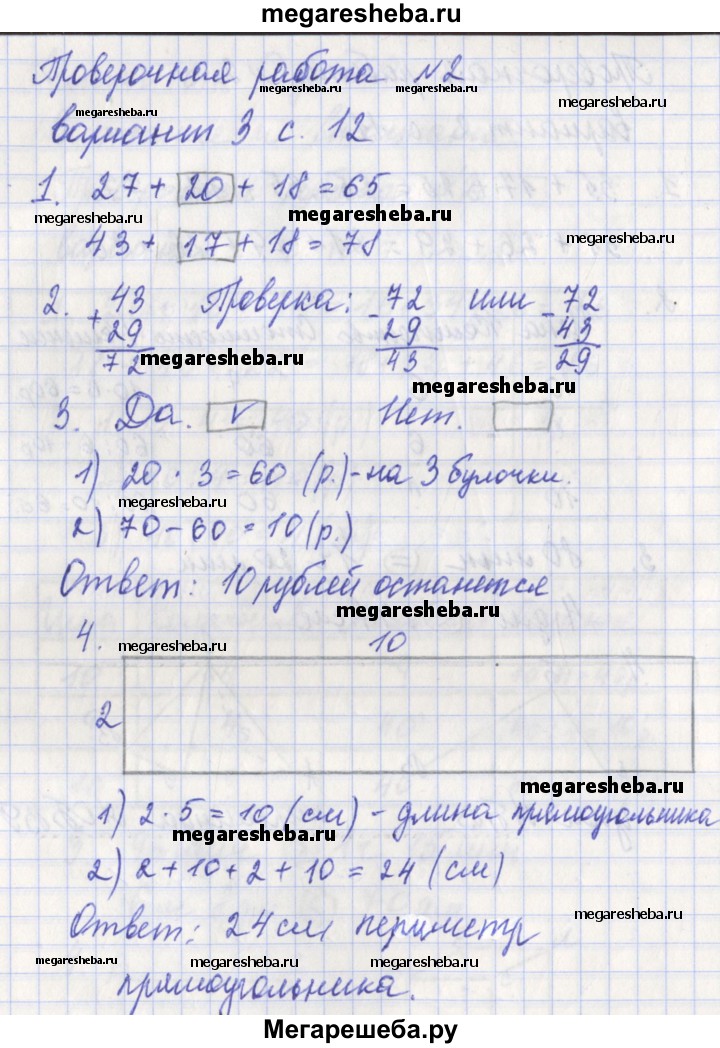 megaresheba.ru
Проверочная работа №2
megaresheba.ru megaresheba.ru megaresheba.ru
megaresheba.ru
вариант 3 с. 12
1. 27 + 20 + 18 = 65
megaresheba.ru megaresheba.ru
43 + 17 + 18 = 78
megaresheba.ru
2. + 43 Проверка: - 72 или - 72
29 29 43
72 43 29
megaresheba.ru
megaresheba.ru
3. Да. V Нет.
1) 20 · 3 = 60 (р.) - на 3 булочки.
megaresheba.ru megaresheba.ru
2) 70 - 60 = 10 (р.)
Ответ: 10 рублей останется
megaresheba.ru
4. megaresheba.ru 10
2
megaresheba.ru
1) 2 · 5 = 10 (см) - длина прямоугольника
megaresheba.ru
2) 2 + 10 + 2 + 10 = 24 (см)
Ответ: 24 см периметр
megaresheba.ru
megaresheba.ru megaresheba.ru megaresheba.ru
прямоугольника.
Мегарешеба.ру